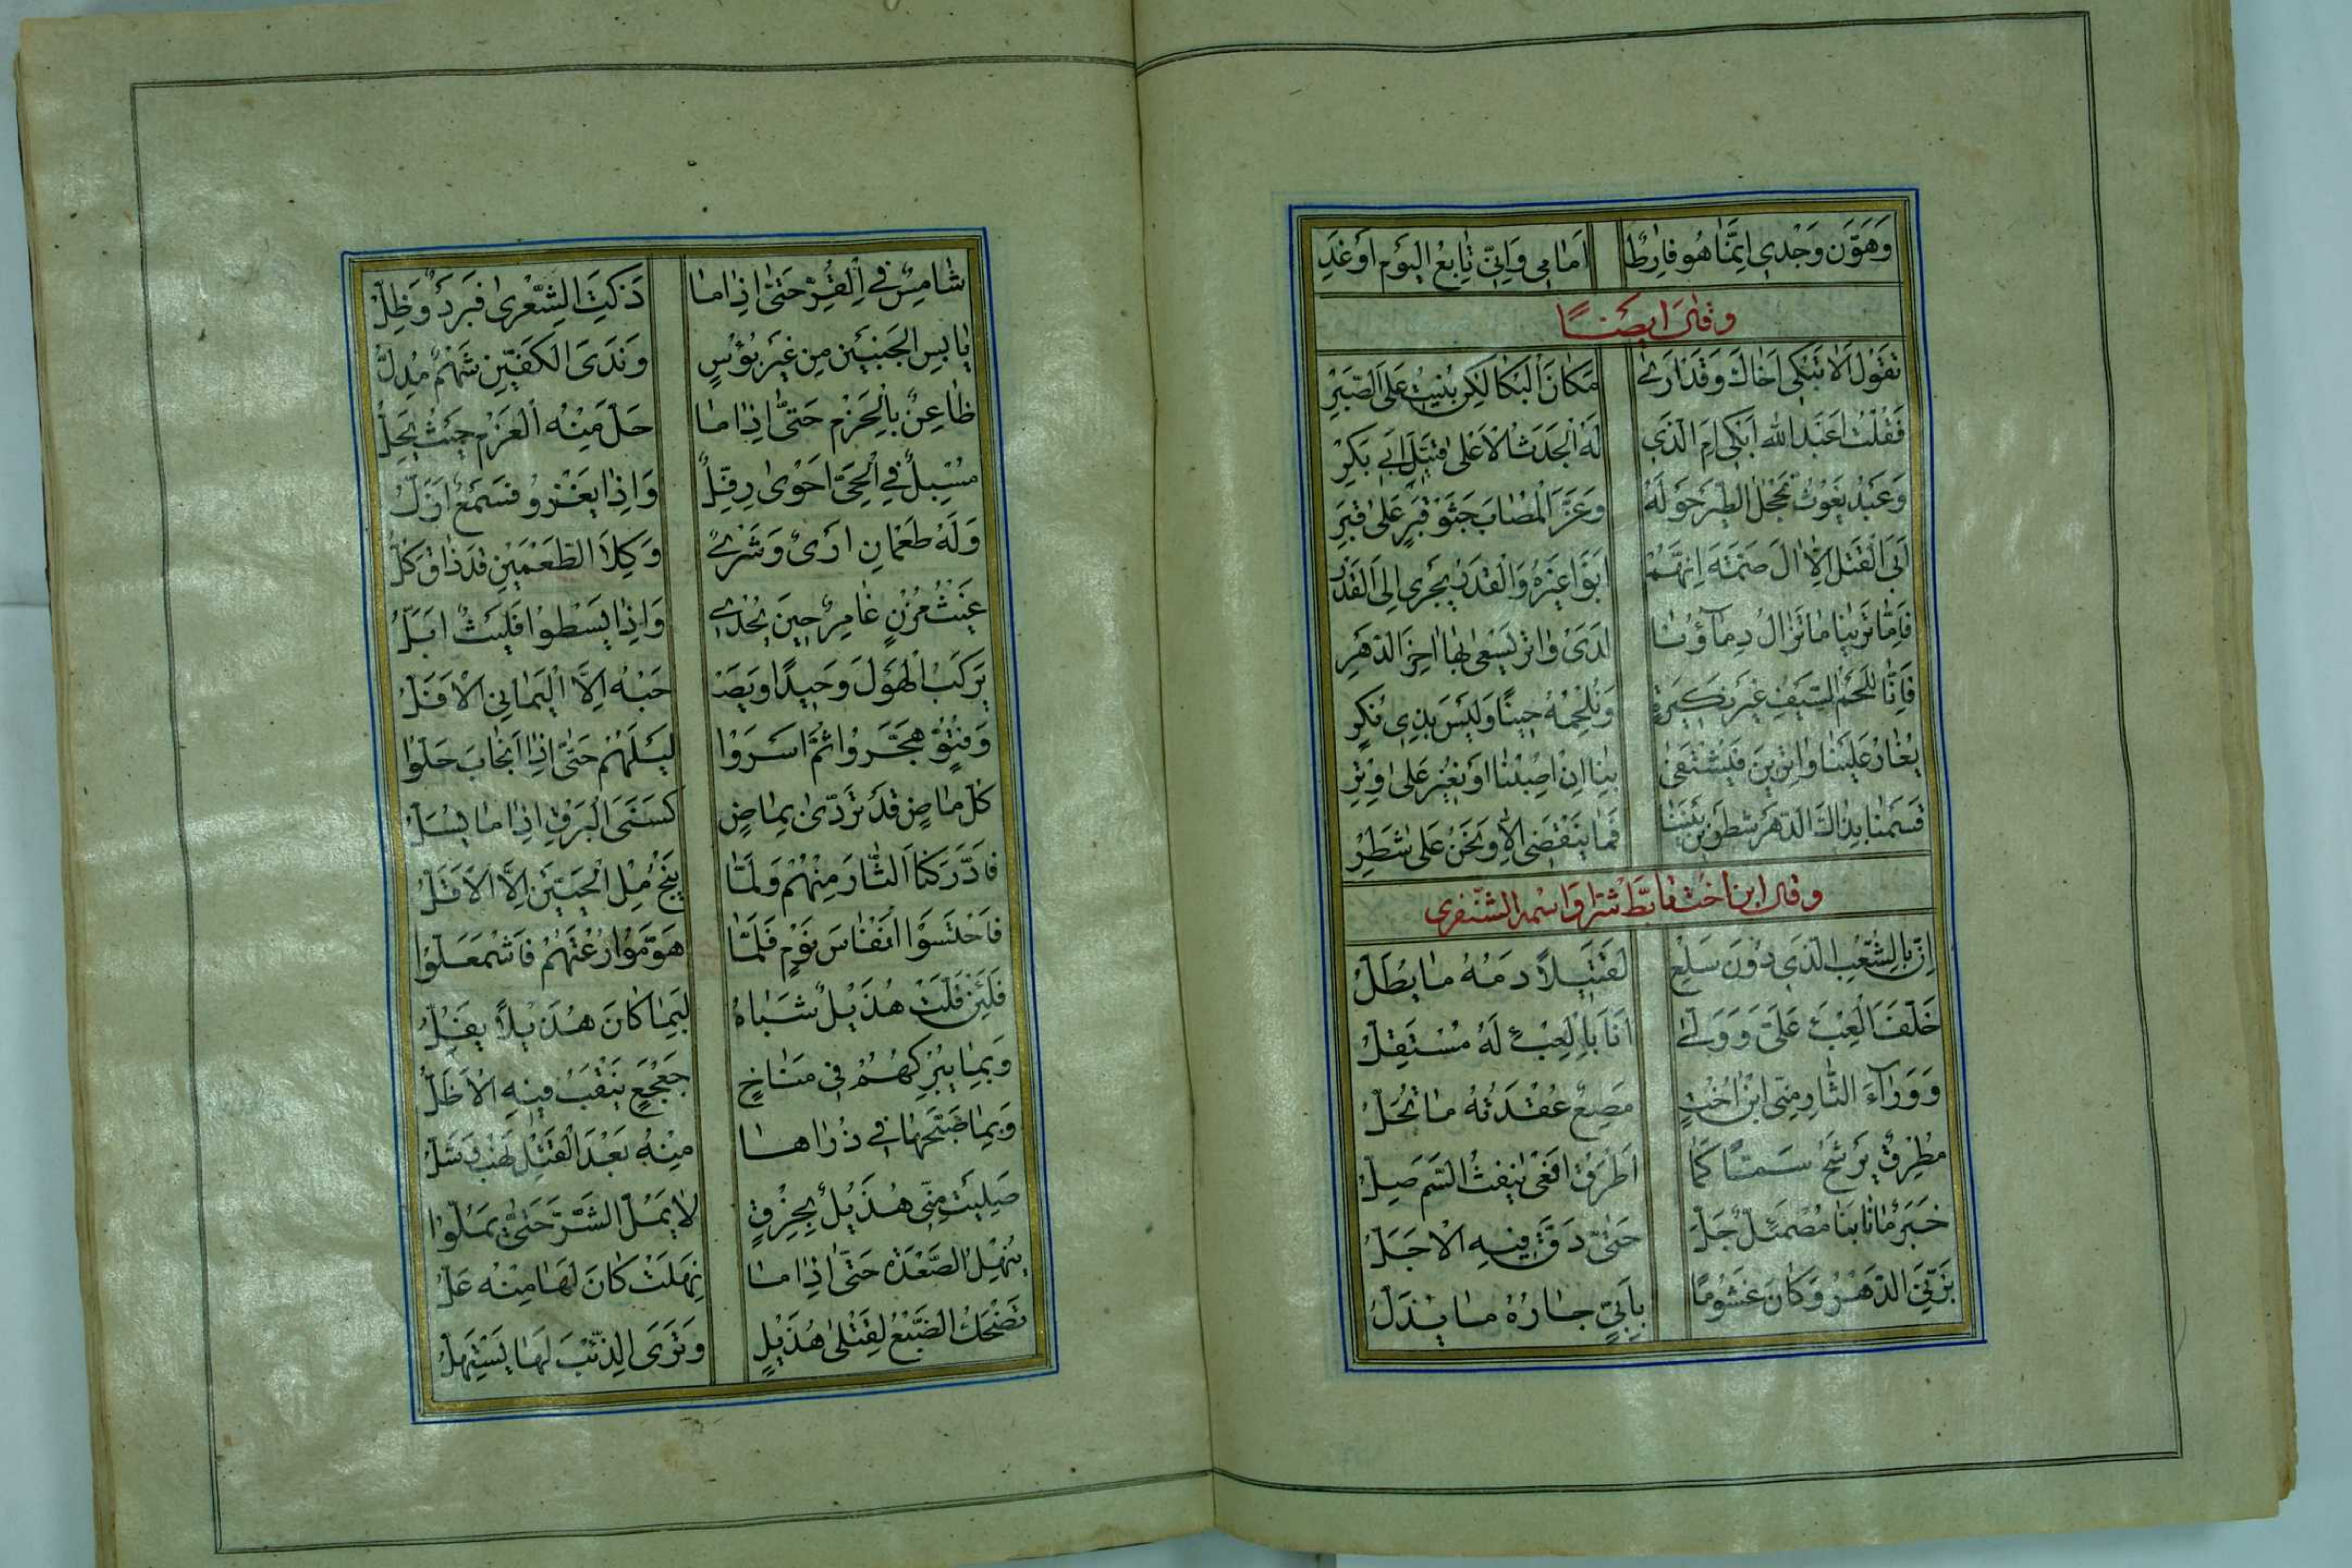 وَهَوَّن وَجْدي اِنَّمٰا هُو فارِطٌ اَمٰامِي وَاِنّي تٰابِعُ اليَوْمِ اَوغَدِ
وقال ايضًا
تَقوُل اَلا تَبْكي اَخاكَ وَقَدْ اَرىٰ مَكانَ الْبُكا لكِن بُنيتُ عَلَى الصَّبرِ
فَقُلْتُ اَعَبْدَ الله اَبْكي اَمِ الَّذي لَهُ الْجَدَثُ الْاَعْلىٰ قَتيلَ اَبي بَكرْ
وَعَبْدُ يَغوُثَ تَحْجُلُ الطَّيْرُ حَوْلَهُ وَعَزَّ الْمُصٰابَ جَثْوُ قَبْرٍ عَلىٰ قَبرِ
اَبَى الْقَتْلُ اِلّٰا اٰلَ صِمَّةَ اِنَّهُمْ اَبَوْا غَيْرَهُ وَالْقَدْرُ يَجْري اِلَى الْقَدْرِ
فَاِمّٰا تَرَيْنٰا مٰا تَزالُ دِمآؤُنا لَدَىٰ وٰاترٍ يَسْعىٰ بِهٰا اٰخِرَ الدَّهْرِ
فَاِنّٰا لَلَحْمُ السَّيْفِ غَيْرَ نَكيرَةٍ وَنُلْحِمُهُ حينًا وَلَيْسَ بِذي نُكْرِ
يُغٰارُ عَلَيْنٰا وٰاتِرينَ فَيُشْتَفىٰ بِنٰا اِنْ اُصِبْنٰا اَوْ نُغيرُ عَلىٰ وِتْرِ
قَسَمْنٰا بِذٰاكَ الدَّهْرَ شَطْرَيْنِ بَيْنَنٰا فَمٰا يَنْقَضي اِلّٰا وَنَحْنُ عَلىٰ شَطْرِ
وقال ابن اخت تأبّط شرًّا واسمه الشّنفرى
اِنَّ بِالشِّعْبِ الَّذي دوُنَ سَلْعٍ لَقَتيلاً دَمُهُ مٰا يُطَلُّ
خَلَّفَ الْعِبْءَ عَلَيَّ وَوَلّىٰ اَنَا بِالْعِبْءِ لَهُ مُسْتَقِلُّ
وَوَرآءَ الثّٰارِ مِنّي ابْنُ اُخْتٍ مَصِعٌ عُقْدَتُهُ مٰا تُحَلُّ
مُطْرِقٌ يَرْشَحُ سَمًّا كَمٰا اَطْرَقَ اَفْعىٰ يَنْفِثُ السَّمَّ صِلُّ
خَبَرٌ مٰا نٰابَنٰا مُصْمَئِلٌّ جَلَّ حَتّىٰ دَقَّ فيهِ الْاَجَلُّ
بَزَّنِي الدَّهْرُ وَكٰانَ غَشوُمًا بِاَبِيٍّ جٰارُهُ مٰا يُذَلُّ
شٰامِسٌ في الْقُرِّ حَتّىٰ اِذٰا مٰا ذَكَتِ الشِّعْرىٰ فَبَرْدٌ وَظِلُّ
يٰابِسُ الْجَنْبَيْنِ مِن غَيْرِ بُؤْسٍ وَنَدَى الْكَفَّيْنِ شَهْمٌ مُدِلُّ
ظٰاعِنٌ بِالْحَزْمِ حَتّىٰ اِذٰا مٰا حَلَّ مِنْهُ الْعَزْمُ حَيْثُ يَحِلُّ
مُسْبِلٌ في الْحَيِّ اَحْوىٰ رِفَلٌّ وَاِذٰا يَغْزوُ فَسِمْعٌ اَزَلُّ
وَلَهُ طَعْمٰانِ اَرْىٌ وَشَرْىٌ وَكِلاَ الطَّعْمَيْنِ قَدْ ذٰاقَ كُلُّ
غَيْثُ مُزْنٍ غٰامِرٌ حينَ يُجْدي وَاِذٰا يَسْطوُا فَلَيْثٌ اَبَلُّ
يَرْكَبُ الْهَوْلَ وَحيدًا وَيَصْـ حَبُهُ اِلَّا الْيَمٰانِي الْاَفَلُّ
وَفُتُوٍّ هَجَّروُا ثُمَّ اَسْرَوْا لَيْلَهُمْ حَتّىٰ اِذَا انْجٰابَ حَلّوُا
كُلُّ مٰاضٍ قَدْ تَرَدّىٰ بِمٰاضٍ كَسَنَى الْبَرْقِ اِذٰا مٰا يُسَلُّ
فَادَّرَكْنَا الثّٰارَ مِنْهُمْ وَلَمّٰا يَنْجُ مِلْ حَيَّيْنِ اِلَّا الْاَقَلُّ
فَاحْتَسَوْا اَنْفٰاسَ نَوْمٍ فَلَمّٰا هَوَّموُا رُعْتَهُمْ فَاشْمَعَلّوُا
فَلَئِنْ فَلَّتْ هُذَيْلٌ شَبٰاهُ لَبِمٰا كٰانَ هُذَيْلًا يَفُلُّ
وَبِمٰا يُبْرِكُهُمْ في مَنٰاخٍ جَعْجَعٍ يَنْقَبُ فيهِ الْاَظَلُّ
وَبِمٰا صَبَّحَهٰا في ذُرٰاهٰا مِنْهُ بَعْدَ الْقَتْلِ نَهْبٌ وَشَلُّ
صَلِيَتْ مِنّي هُذَيْلٌ بِخِرْقٍ لٰا يَمَلُّ الشَّرَّ حَتّىٰ يَمَلّوُا
يُنْهِلُ الصَّعْدَةَ حَتّىٰ اِذٰا مٰا نَهِلَتْ كٰانَ لَهٰا مِنْهُ عَلُّ
تَضْحَكُ الضَّبْعُ لِقَتْلىٰ هُذَيْلٍ وَتَرَى الذِّئْبَ لَهٰا يَسْتَهِلُّ